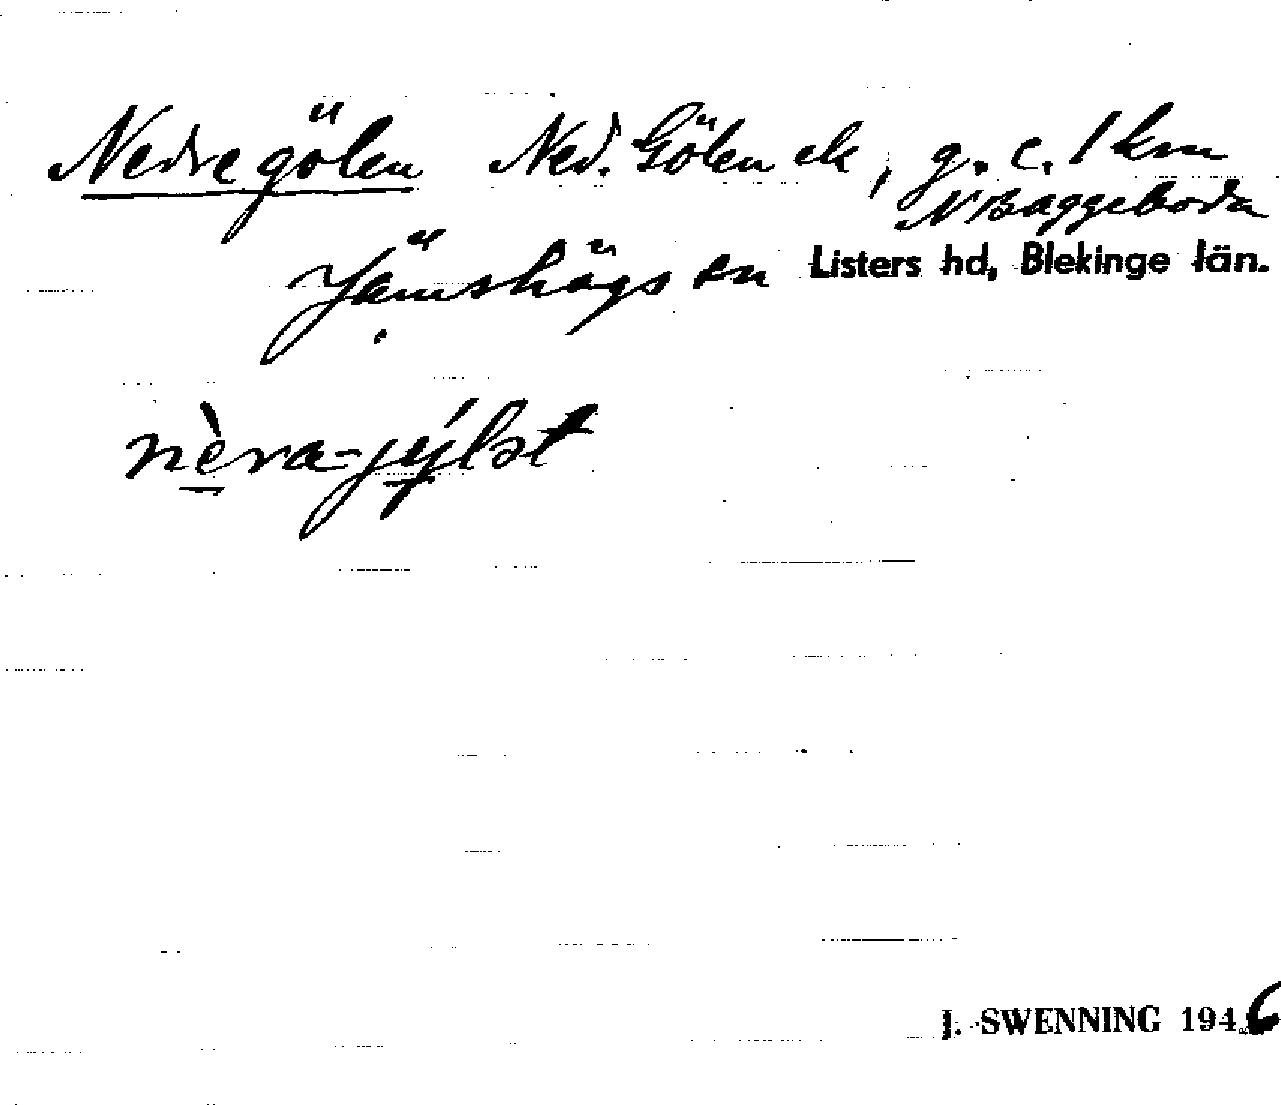 Nedregölen Ned. Gölen ek, g. c. 1 km
N Baggeboda
Jämshögs sn Listers hd, Blekinge län.
nèra-jýlət
J. SWENNING 1946